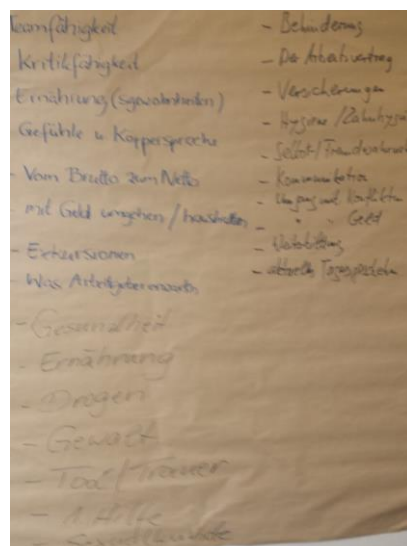 Teamfähigkeit
Kritikfähigkeit
Ernährung(sgewohnheiten)
Gefühle u. Körpersprache
- Vom Brutto zum Netto
- mit Geld umgehen / haushalten
- Exkursionen
- Was Arbeitgeber erwarten
- Gesundheit
- Ernährung
- Drogen
- Gewalt
- Tod / Trauer
- 1. Hilfe
- Behinderung
- Der Arbeitsvertrag
- Versicherungen
- Hygiene / Zahnhygiene
- Selbst-/Fremdwahrnehm
- Kommunikation
- Umgang mit Konflikten
- " " Geld
- Weiterbildung
- aktuelles Tagesgeschehen